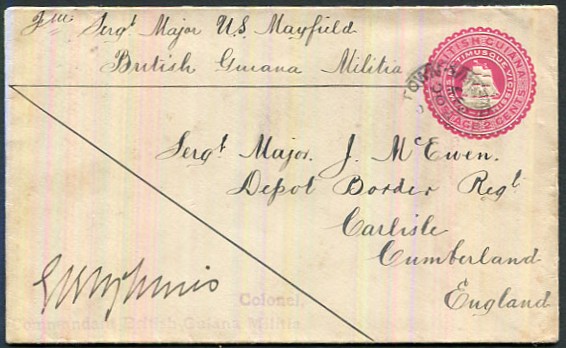 Serg^t Major U.S. Mayfield
British Guiana Militia
BRITISH GUIANA
POSTAGE 2 CENTS
Serg^t Major. J. M^cEwen.
Depot Border Reg^t
Carlisle
Cumberland
England
Colonel,
Commandant British Guiana Militia